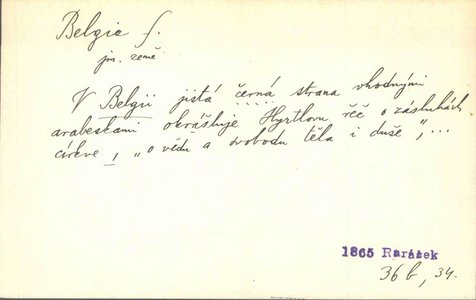 Belgie f.
jm. země
V Belgii jistá černá strana vhodnými
arabeskami okrášluje Hyrtlovu řeč o zásluhách
církve, „o vědu a svobodu těla i duše“,...
1865 Rarášek
36b, 34.